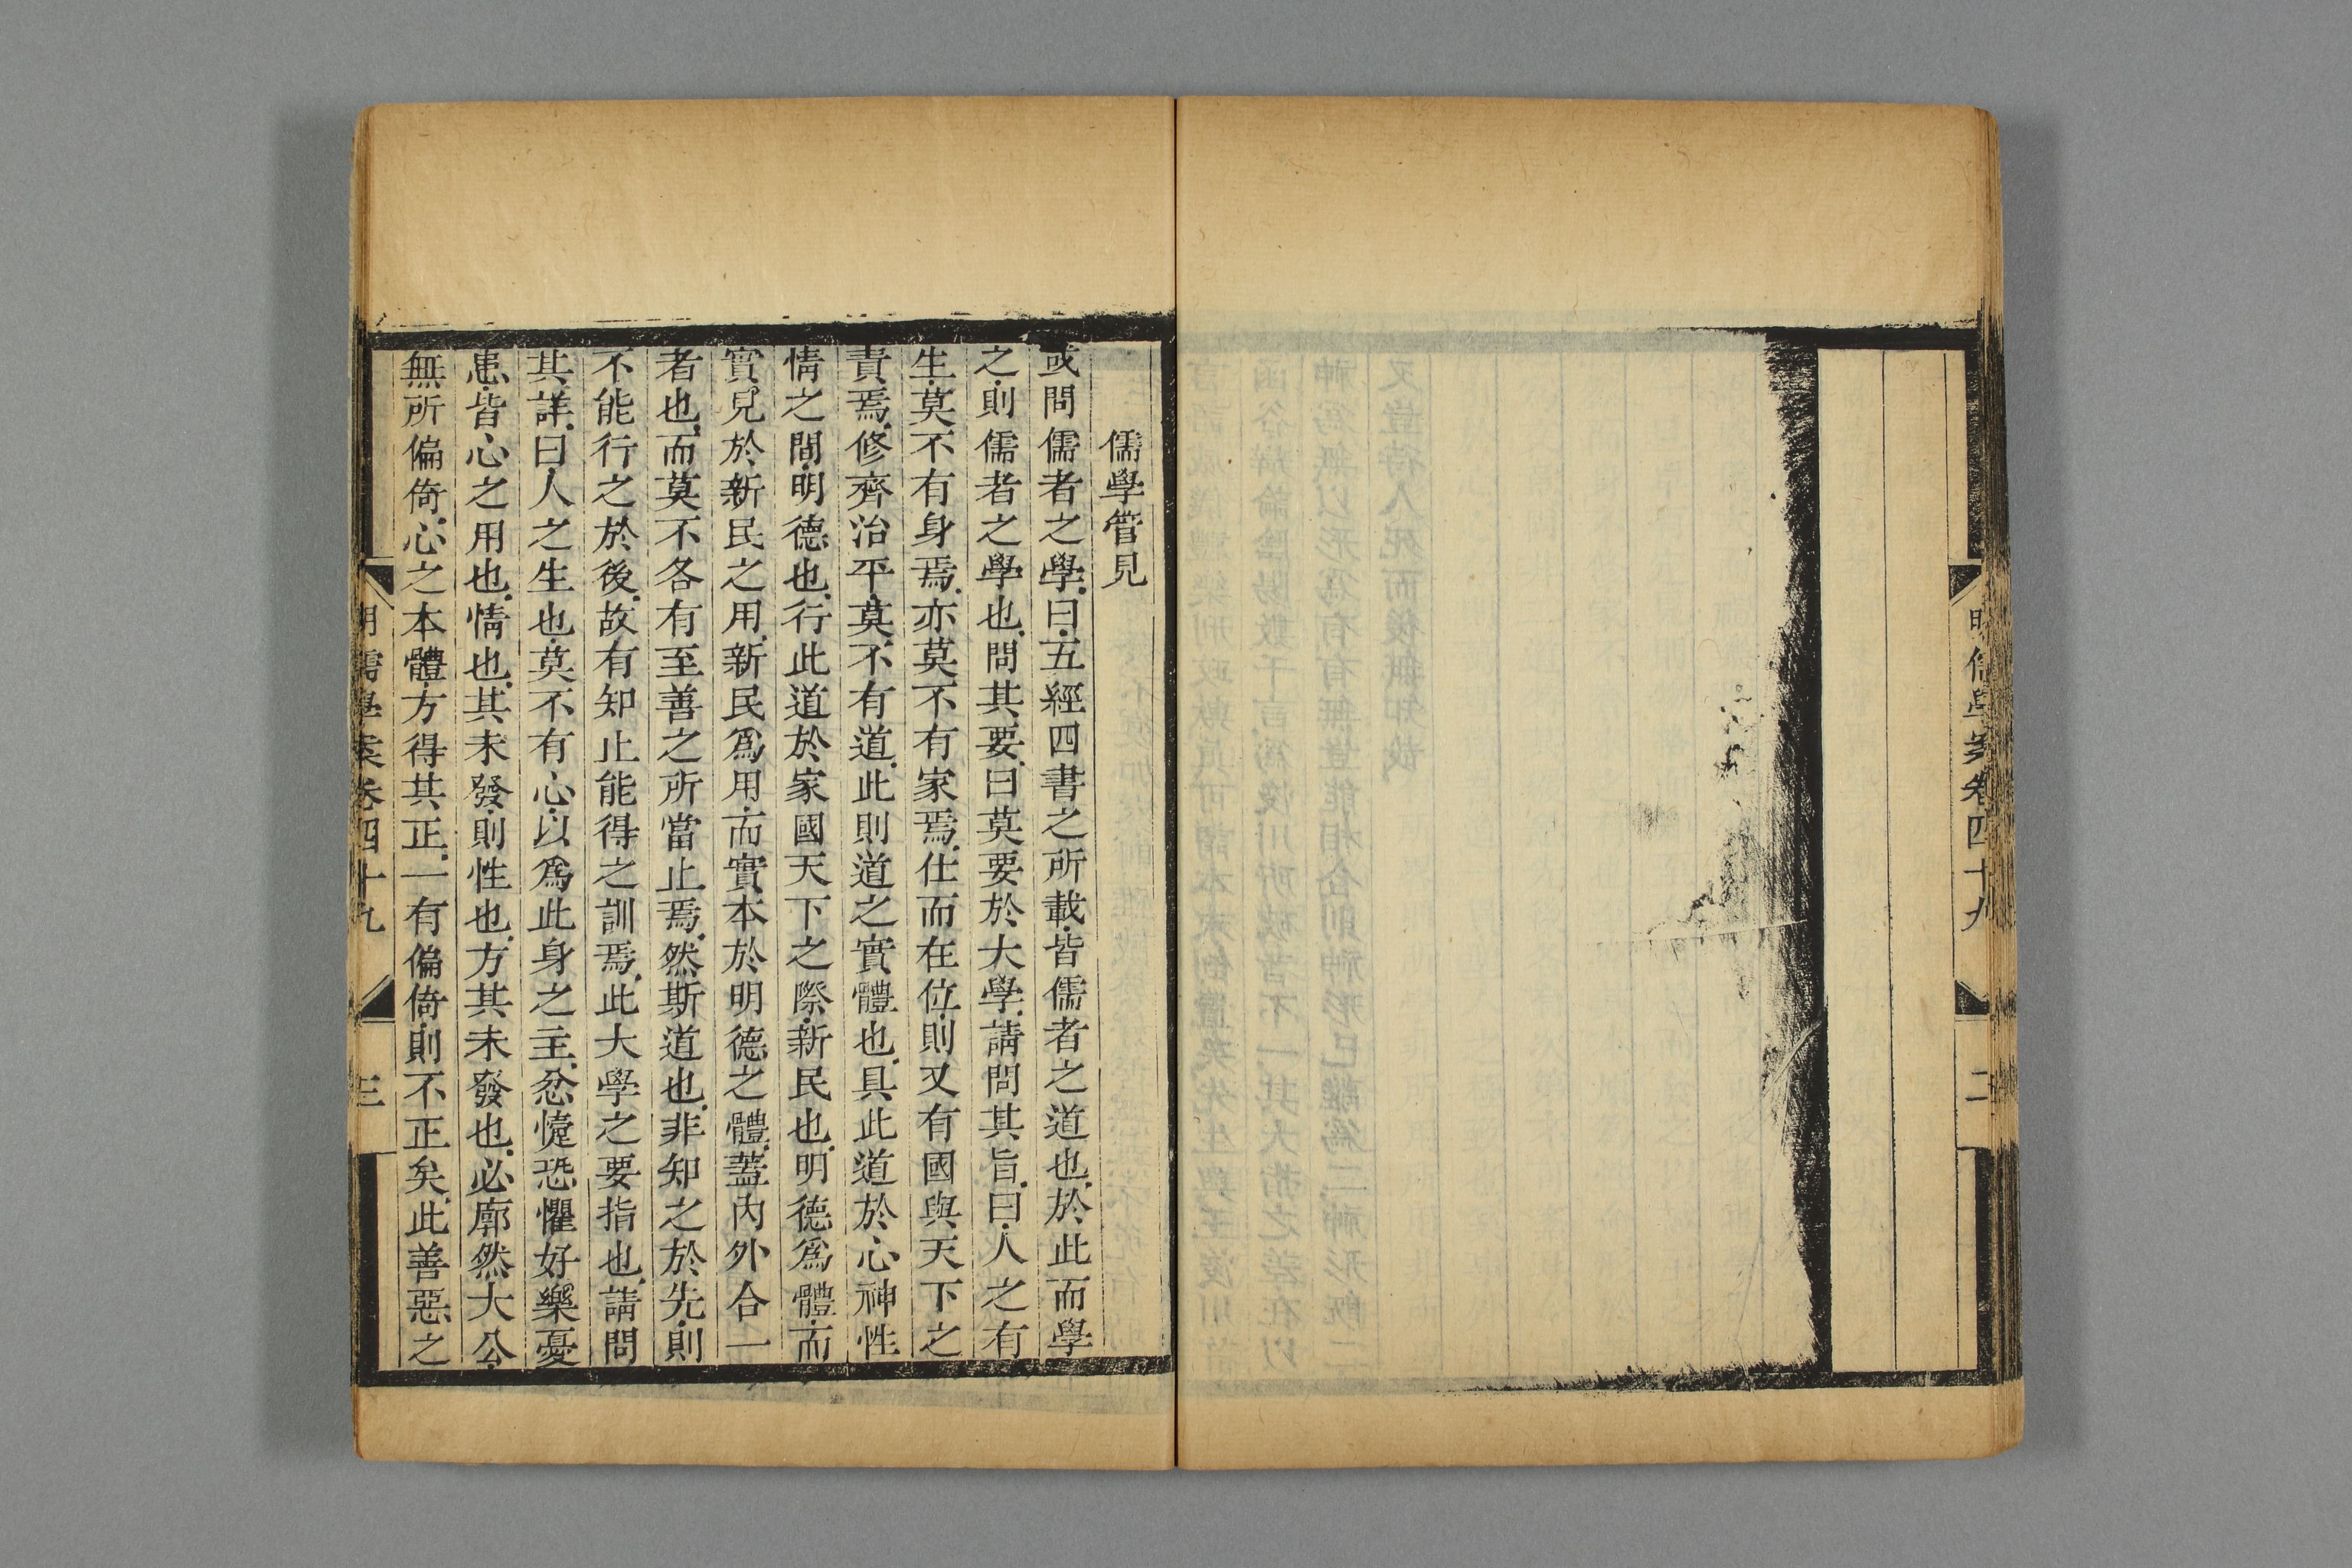 明儒學案卷四十九
二
儒學管見
或問儒者之學曰五經四書之所載皆儒者之道也於此而學
之則儒者之學也問其要曰莫要於大學請問其旨曰人之有
生莫不有身焉亦莫不有家焉仕而在位則又有國與天下之
責焉修齊治平莫不有道此則道之實體也具此道於心神性
情之間明德也行此道於家國天下之際新民也明德爲體而
實見於新民之用新民爲用而實本於明德之體蓋內外合一
者也而莫不各有至善之所當止焉然斯道也非知之於先則
不能行之於後故有知止能得之訓焉此大學之要指也請問
其詳曰人之生也莫不有心以爲此身之主忿懥恐懼好樂憂
患皆心之用也情也其未發則性也方其未發也必廓然大公
無所偏倚心之本體方得其正一有偏倚則不正矣此善惡之
明儒學案卷四十九
三